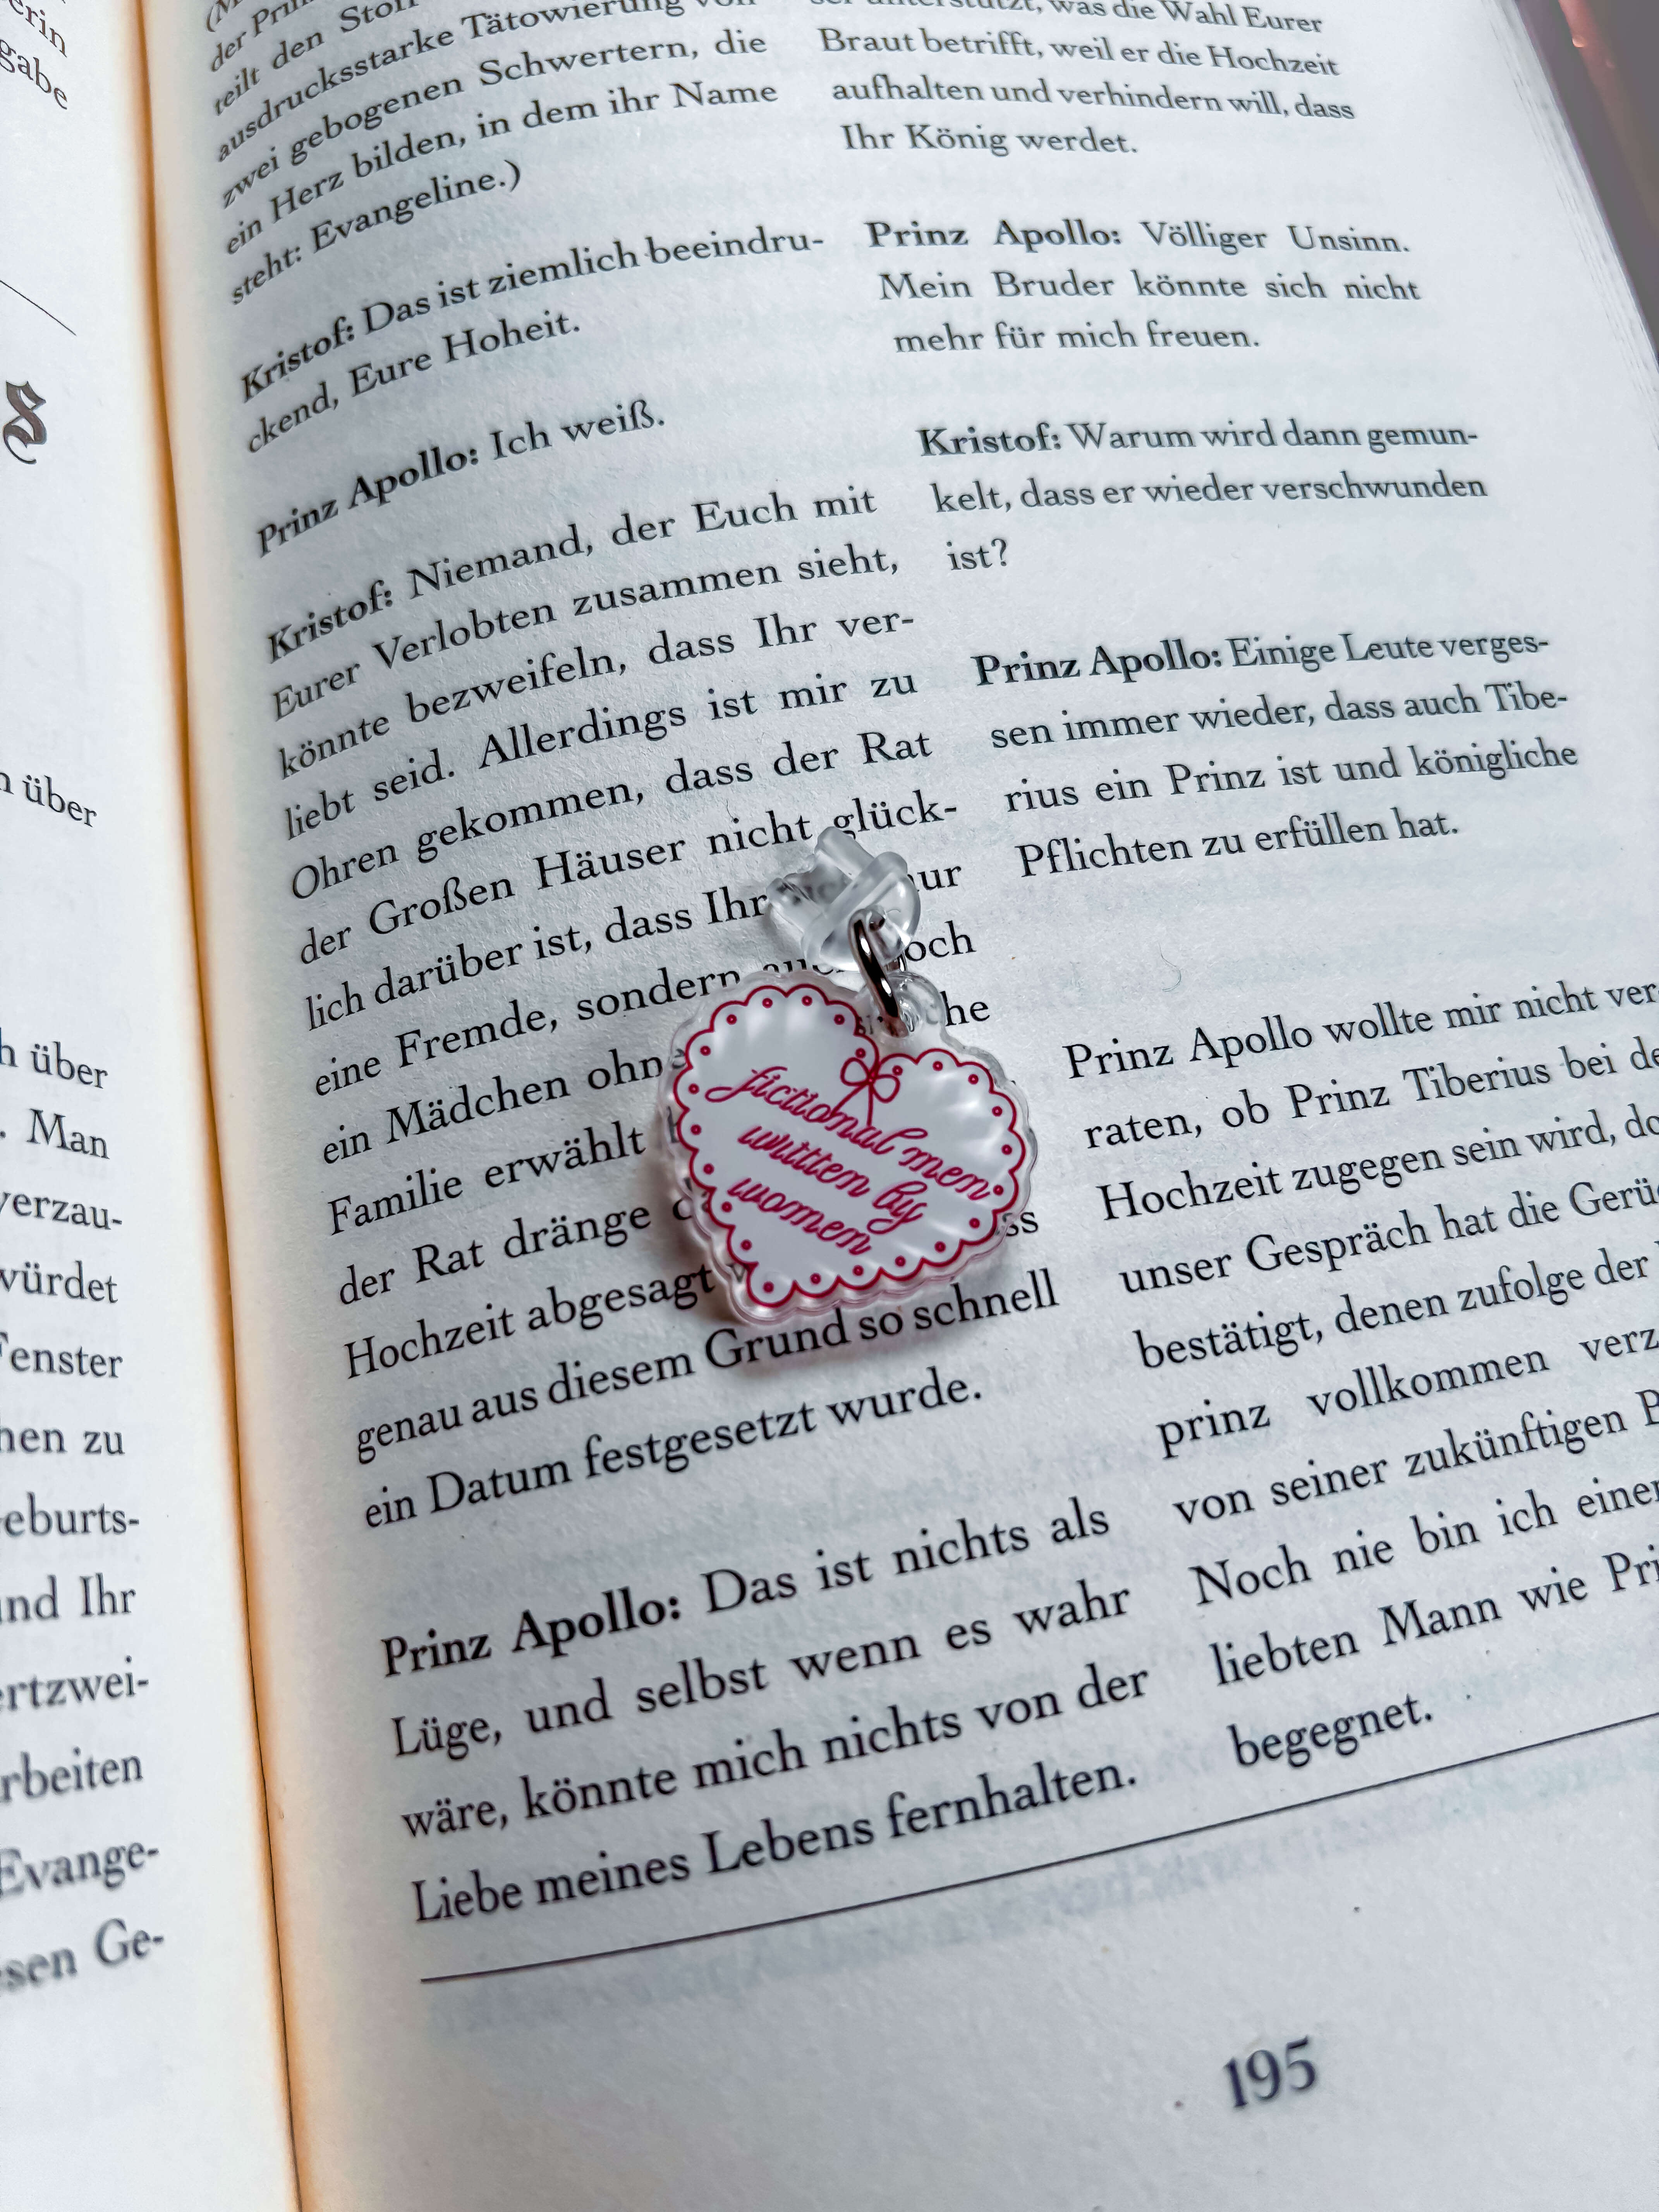 erin
gabe
n über
h über
. Man
verzau-
würdet
Fenster
hen zu
eburts-
und Ihr
ertzwei-
rbeiten
Evange-
esen Ge-
teilt den
ausdrucksstarke Tätowierung von
zwei gebogenen Schwertern, die
ein Herz bilden, in dem ihr Name
steht: Evangeline.)
Kristof: Das ist ziemlich beeindru-
ckend, Eure Hoheit.
Prinz Apollo: Ich weiß.
Kristof: Niemand, der Euch mit
Eurer Verlobten zusammen sieht,
könnte bezweifeln, dass Ihr ver-
liebt seid. Allerdings ist mir zu
Ohren gekommen, dass der Rat
der Großen Häuser nicht glück-
lich darüber ist, dass Ihr nur
eine Fremde, sondern auch noch
ein Mädchen
Familie erwählt
der Rat dränge
Hochzeit abgesagt
genau aus diesem Grund so schnell
ein Datum festgesetzt wurde.
Prinz Apollo: Das ist nichts als
Lüge, und selbst wenn es wahr
wäre, könnte mich nichts von der
Liebe meines Lebens fernhalten.
fictional men
written by
women
was die Wahl Eurer
Braut betrifft, weil er die Hochzeit
aufhalten und verhindern will, dass
Ihr König werdet.
Prinz Apollo: Völliger Unsinn.
Mein Bruder könnte sich nicht
mehr für mich freuen.
Kristof: Warum wird dann gemun-
kelt, dass er wieder verschwunden
ist?
Prinz Apollo: Einige Leute verges-
sen immer wieder, dass auch Tibe-
rius ein Prinz ist und königliche
Pflichten zu erfüllen hat.
Prinz Apollo wollte mir nicht ver-
raten, ob Prinz Tiberius bei de
Hochzeit zugegen sein wird, do
unser Gespräch hat die Gerü
bestätigt, denen zufolge der
prinz vollkommen verz
von seiner zukünftigen B
Noch nie bin ich einer
liebten Mann wie Pri
begegnet.
195